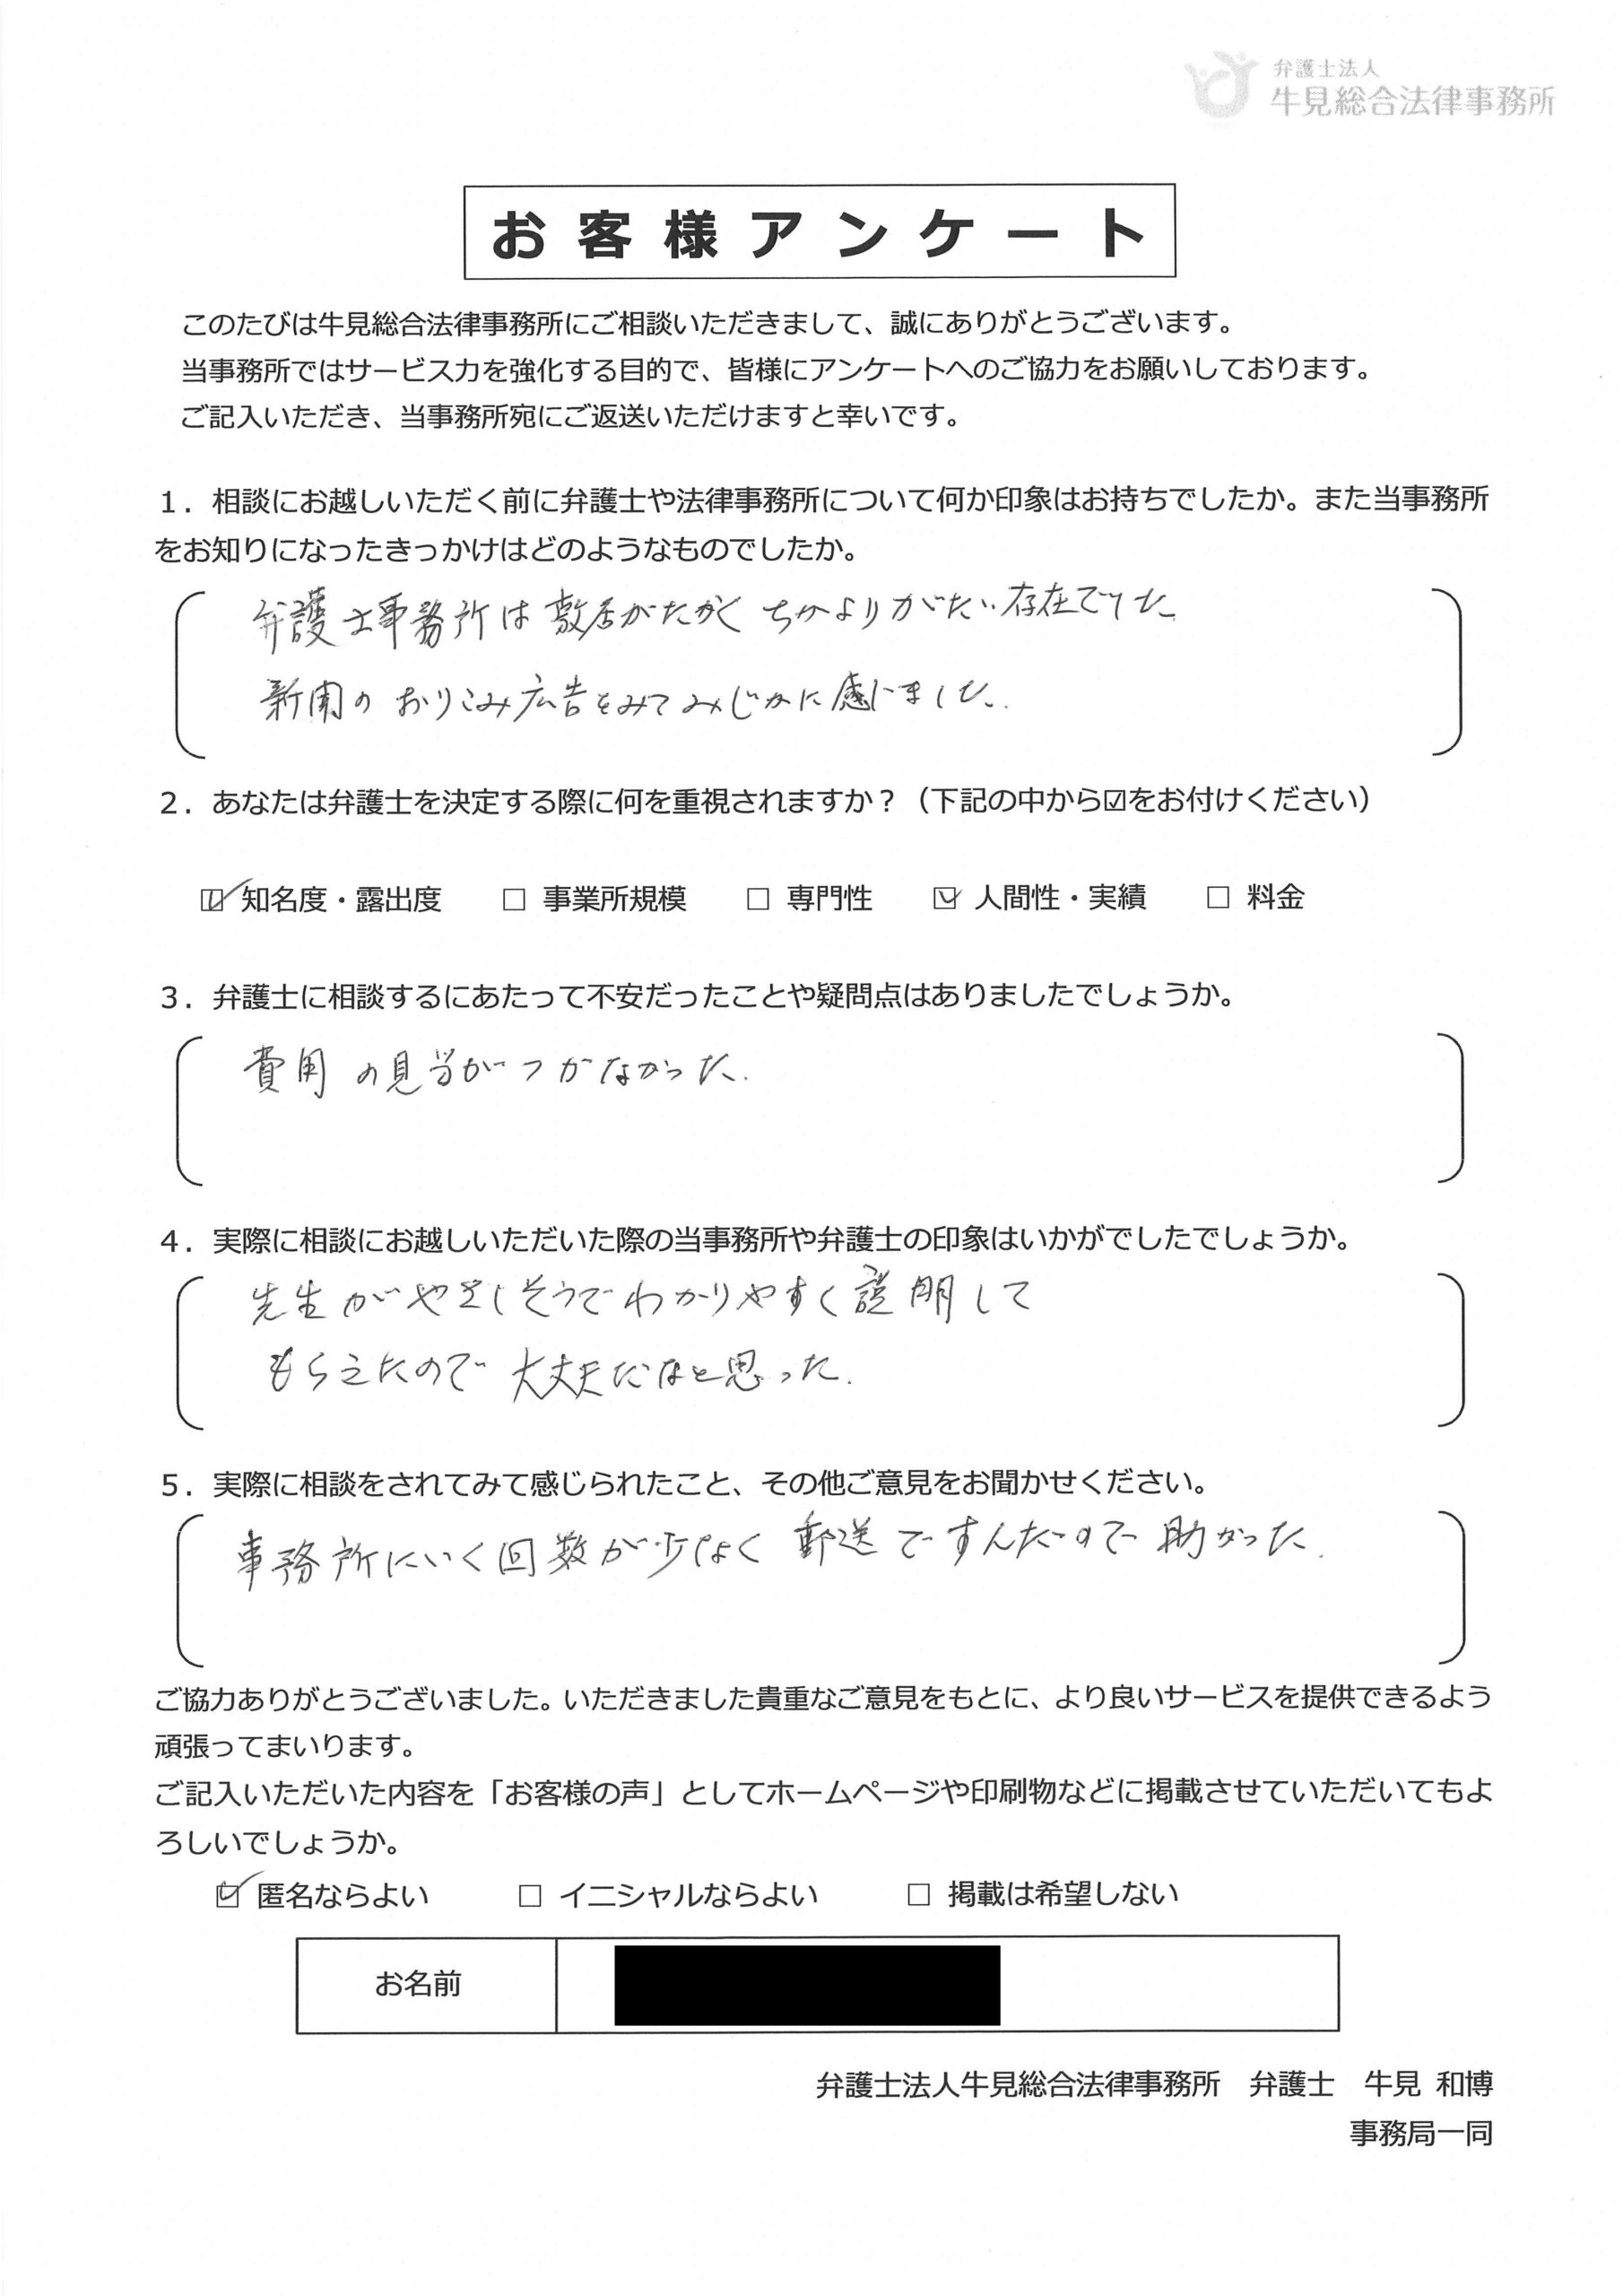 弁護士法人
牛見総合法律事務所
お客様アンケート
このたびは牛見総合法律事務所にご相談いただきまして、誠にありがとうございます。
当事務所ではサービス力を強化する目的で、皆様にアンケートへのご協力をお願いしております。
ご記入いただき、当事務所宛にご返送いただけますと幸いです。
１．相談にお越しいただく前に弁護士や法律事務所について何か印象はお持ちでしたか。また当事務所
をお知りになったきっかけはどのようなものでしたか。
弁護士事務所は敷居がたかく ちかよりがたい存在でした
新聞の おりこみ広告をみてみじかに感じました.
２．あなたは弁護士を決定する際に何を重視されますか？（下記の中から☑をお付けください）
☑ 知名度・露出度 □ 事業所規模 □ 専門性 ☑ 人間性・実績 □ 料金
３．弁護士に相談するにあたって不安だったことや疑問点はありましたでしょうか。
費用の見当がつかなかった.
４．実際に相談にお越しいただいた際の当事務所や弁護士の印象はいかがでしたでしょうか。
先生がやさしそうでわかりやすく説明して
もらえたので 大丈夫だなと思った.
５．実際に相談をされてみて感じられたこと、その他ご意見をお聞かせください。
事務所にいく回数が少なく 郵送ですんだので 助かった.
ご協力ありがとうございました。いただきました貴重なご意見をもとに、より良いサービスを提供できるよう
頑張ってまいります。
ご記入いただいた内容を「お客様の声」としてホームページや印刷物などに掲載させていただいてもよ
ろしいでしょうか。
☑ 匿名ならよい □ イニシャルならよい □ 掲載は希望しない
お名前
弁護士法人牛見総合法律事務所 弁護士 牛見 和博
事務局一同